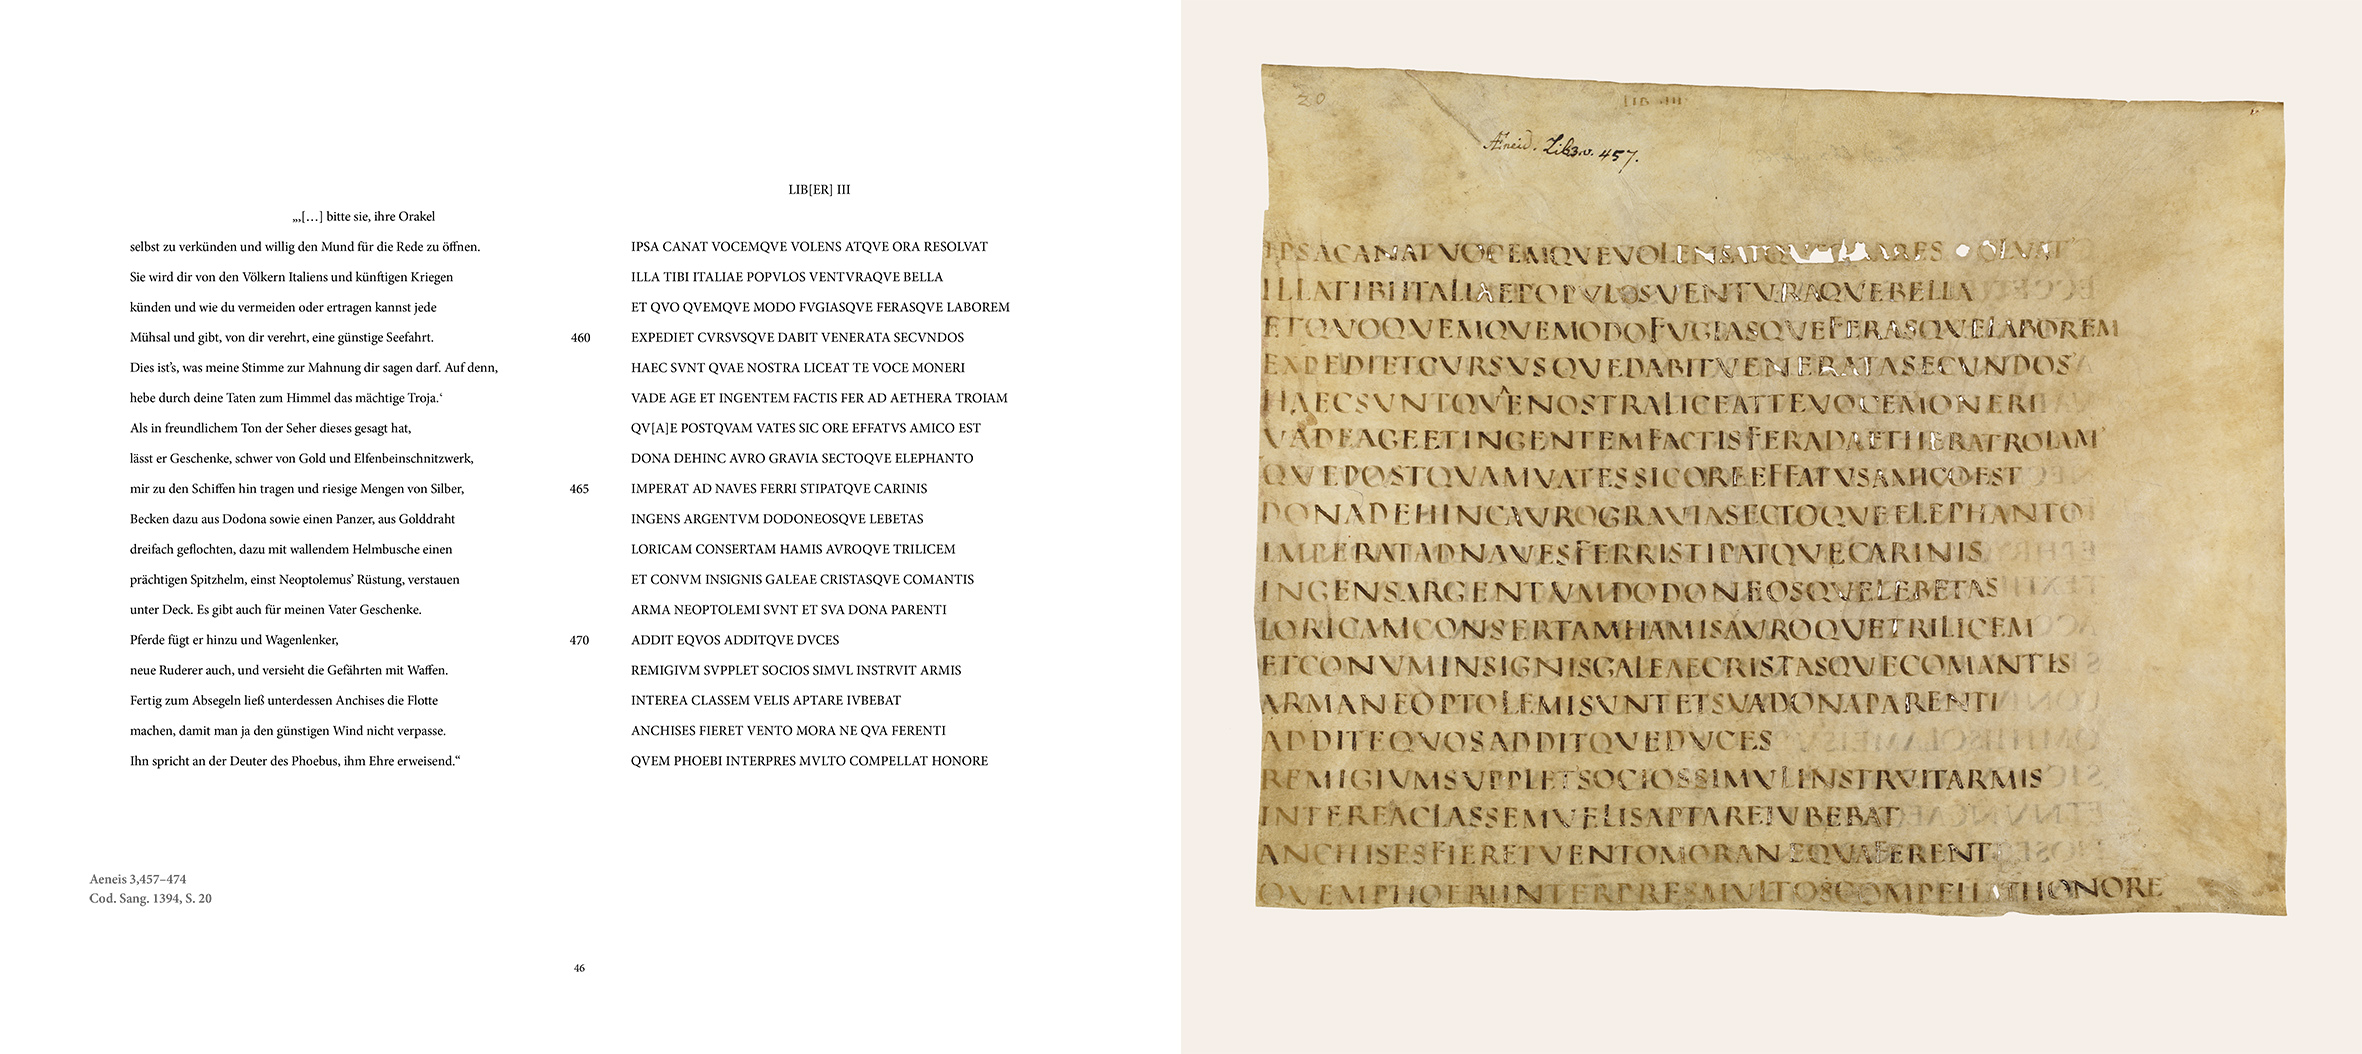 „‚[…] bitte sie, ihre Orakel
selbst zu verkünden und willig den Mund für die Rede zu öffnen.
Sie wird dir von den Völkern Italiens und künftigen Kriegen
künden und wie du vermeiden oder ertragen kannst jede
Mühsal und gibt, von dir verehrt, eine günstige Seefahrt.
Dies ist’s, was meine Stimme zur Mahnung dir sagen darf. Auf denn,
hebe durch deine Taten zum Himmel das mächtige Troja.‘
Als in freundlichem Ton der Seher dieses gesagt hat,
lässt er Geschenke, schwer von Gold und Elfenbeinschnitzwerk,
mir zu den Schiffen hin tragen und riesige Mengen von Silber,
Becken dazu aus Dodona sowie einen Panzer, aus Golddraht
dreifach geflochten, dazu mit wallendem Helmbusche einen
prächtigen Spitzhelm, einst Neoptolemus’ Rüstung, verstauen
unter Deck. Es gibt auch für meinen Vater Geschenke.
Pferde fügt er hinzu und Wagenlenker,
neue Ruderer auch, und versieht die Gefährten mit Waffen.
Fertig zum Absegeln ließ unterdessen Anchises die Flotte
machen, damit man ja den günstigen Wind nicht verpasse.
Ihn spricht an der Deuter des Phoebus, ihm Ehre erweisend.“
LIB[ER] III
IPSA CANAT VOCEMQVE VOLENS ATQVE ORA RESOLVAT
ILLA TIBI ITALIAE POPVLOS VENTVRAQVE BELLA
ET QVO QVEMQVE MODO FVGIASQVE FERASQVE LABOREM
460 EXPEDIET CVRSVSQVE DABIT VENERATA SECVNDOS
HAEC SVNT QVAE NOSTRA LICEAT TE VOCE MONERI
VADE AGE ET INGENTEM FACTIS FER AD AETHERA TROIAM
QV[A]E POSTQVAM VATES SIC ORE EFFATVS AMICO EST
DONA DEHINC AVRO GRAVIA SECTOQVE ELEPHANTO
465 IMPERAT AD NAVES FERRI STIPATQVE CARINIS
INGENS ARGENTVM DODONEOSQVE LEBETAS
LORICAM CONSERTAM HAMIS AVROQVE TRILICEM
ET CONVM INSIGNIS GALEAE CRISTASQVE COMANTIS
ARMA NEOPTOLEMI SVNT ET SVA DONA PARENTI
470 ADDIT EQVOS ADDITQVE DVCES
REMIGIVM SVPPLET SOCIOS SIMVL INSTRVIT ARMIS
INTEREA CLASSEM VELIS APTARE IVBEBAT
ANCHISES FIERET VENTO MORA NE QVA FERENTI
QVEM PHOEBI INTERPRES MVLTO COMPELLAT HONORE
Aeneis 3,457–474
Cod. Sang. 1394, S. 20
46
20
LIB III
Æneid. Lib3.v. 457.
IPSACANATVOCEMQVEVOLENSATQVEORARESOLVAT
ILLATIBIITALIAEPOPVLOSVENTVRAQVEBELLA
ETQVOQVEMQVEMODOFVGIASQVEFERASQVELABOREM
EXPEDIETCVRSVSQVEDABITVENERATASECVNDOS
HAECSVNTQVAENOSTRALICEATTEVOCEMONERI
VADEAGEETINGENTEMFACTISFERADAETHERATROIAM
QVEPOSTQVAMVATESSICOREEFFATVSAMICOEST
DONADEHINCAVROGRAVIASECTOQVEELEPHANTO
IMPERATADNAVESFERRISTIPATQVECARINIS
INGENSARGENTVMDODONEOSQVELEBETAS
LORICAMCONSERTAMHAMISAVROQVETRILICEM
ETCONVMINSIGNISGALEAECRISTASQVECOMANTIS
ARMANEOPTOLEMISVNTETSVADONAPARENTI
ADDITEQVOSADDITQVEDVCES
REMIGIVMSVPPLETSOCIOSSIMVLINSTRVITARMIS
INTEREACLASSEMVELISAPTAREIVBEBAT
ANCHISESFIERETVENTOMORANEQVAFERENTI
QVEMPHOEBIINTERPRESMVLTOSCOMPELLATHONORE